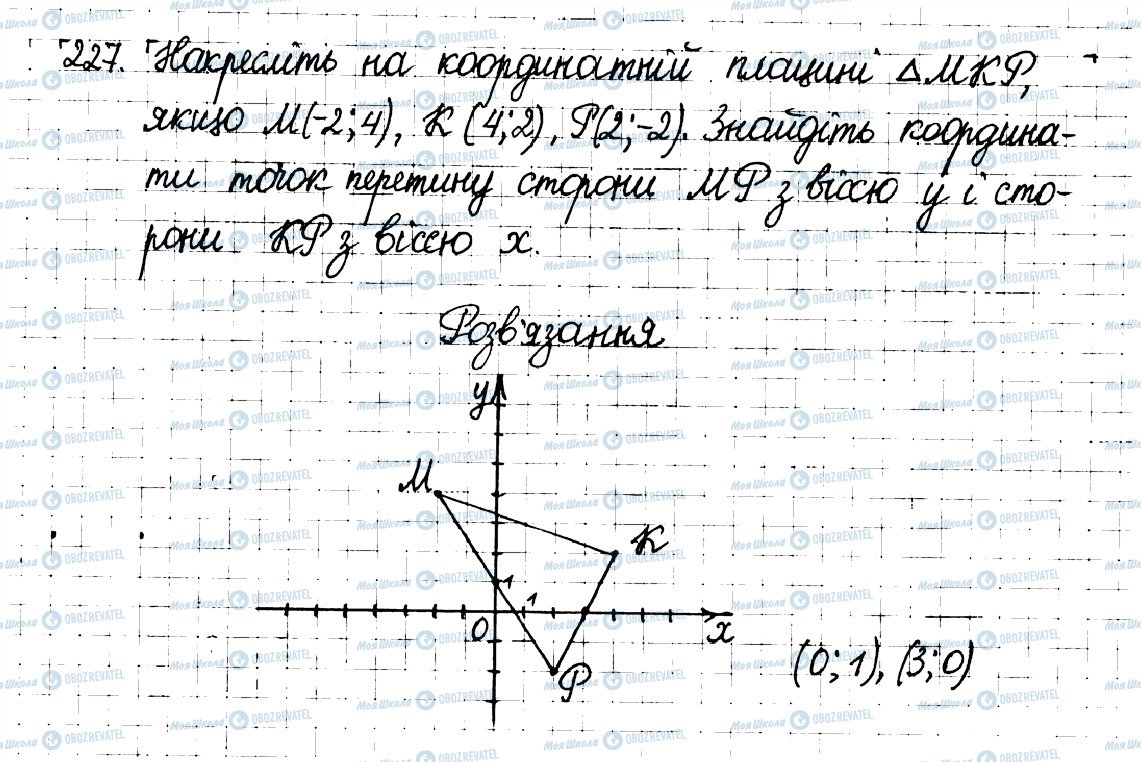 227. Накресліть на координатній площині △MKP,
якщо M(-2;4), K(4;2), P(2;-2). Знайдіть координа-
ти точок перетину сторони MP з віссю y і сто-
рони KP з віссю x.
Розв'язання
y
M
K
1
1
0
x
P
(0;1), (3;0)
МояШкола OBOZREVATEL